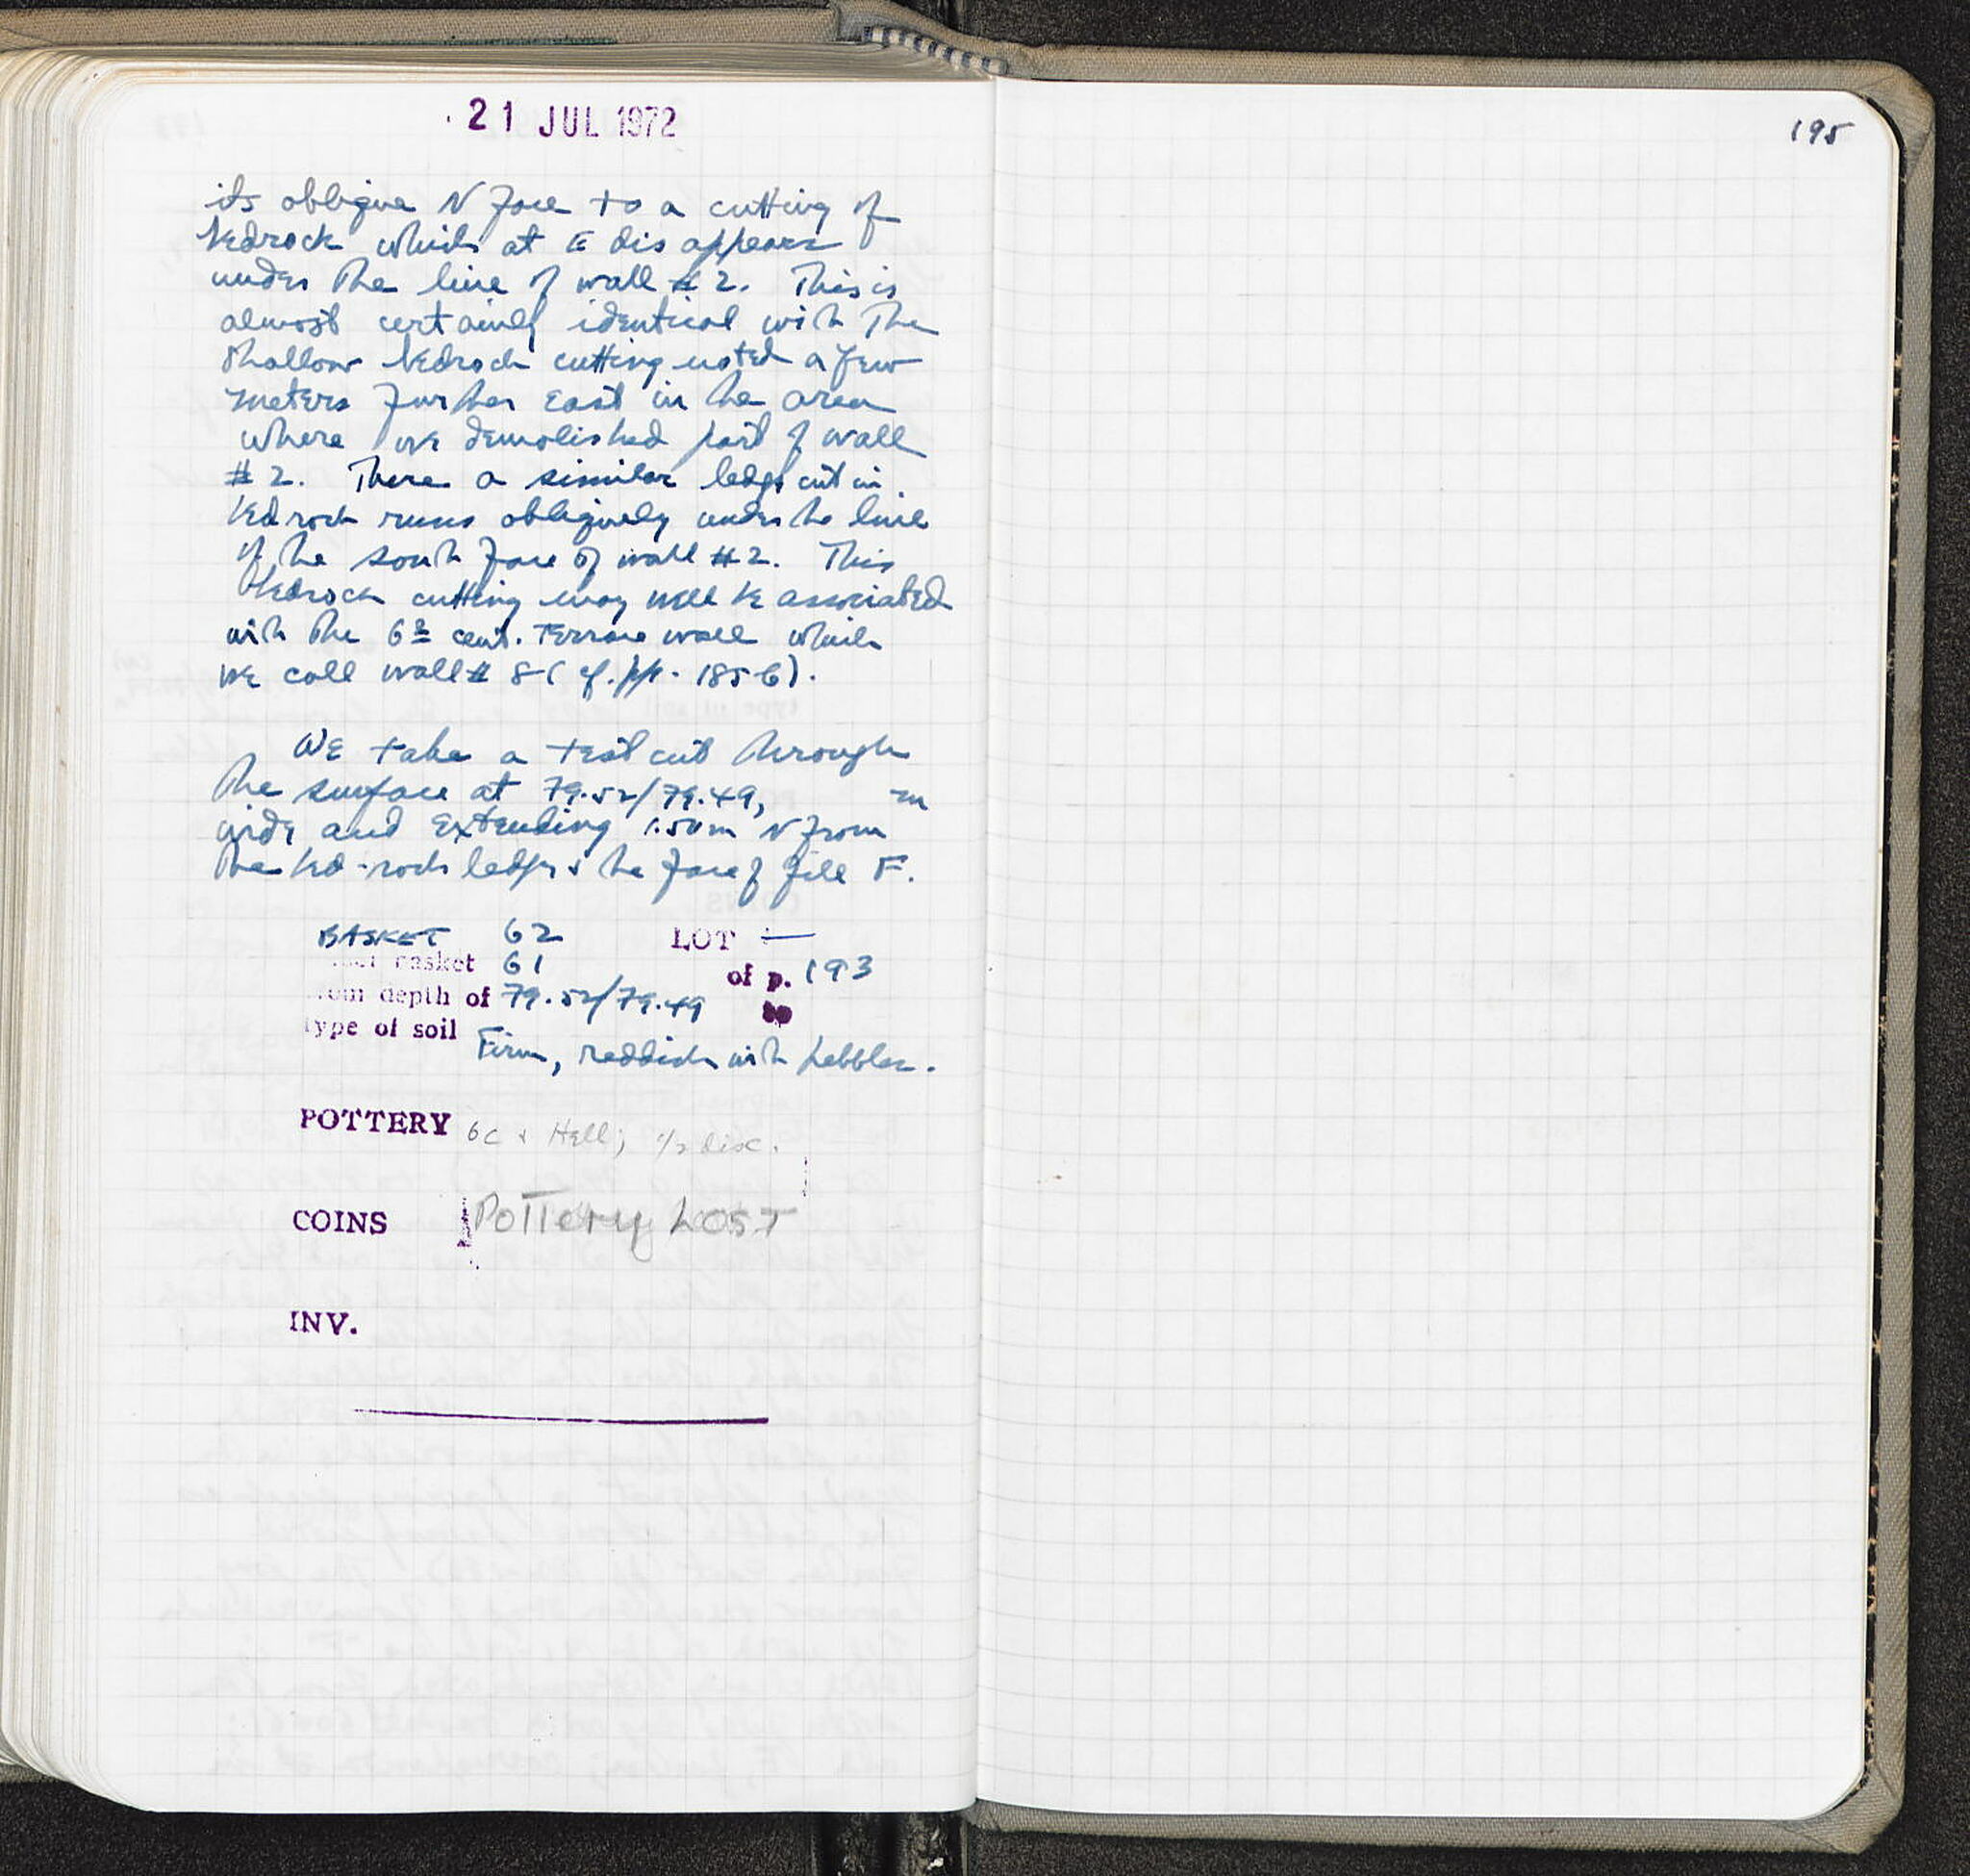 21 JUL 1972
its oblique N face to a cutting of
bedrock which at E disappears
under the line of wall #2. This is
almost certainly identical with the
shallow bedrock cutting noted a few
meters further east in the area
where we demolished part of wall
#2. There a similar ledge cut in
bedrock runs obliquely under the line
of the south face of wall #2. This
bedrock cutting may well be associated
with the 6th cent. terrace wall which
we call wall # 8 (cf. pp. 185-6).
We take a test cut through
the surface at 79.52/79.49, m
wide and extending 1.50m N from
the bed-rock ledge & the face of fill F.
BASKET 62 LOT —
basket 61 of p. 193
from depth of 79.52/79.49 to
type of soil Firm, reddish with pebbles.
POTTERY 6c & Hell; 1/2 disc.
COINS Pottery LOST
INV.
195